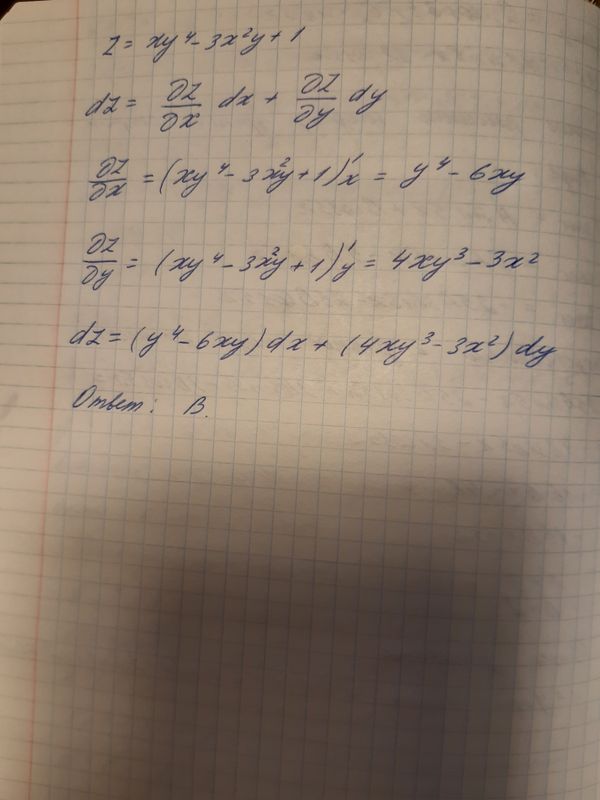 z = xy⁴ - 3x²y + 1
dz = ∂z/∂x dx + ∂z/∂y dy
∂z/∂x = (xy⁴ - 3x²y + 1)'x = y⁴ - 6xy
∂z/∂y = (xy⁴ - 3x²y + 1)'y = 4xy³ - 3x²
dz = (y⁴ - 6xy) dx + (4xy³ - 3x²) dy
Ответ: В.